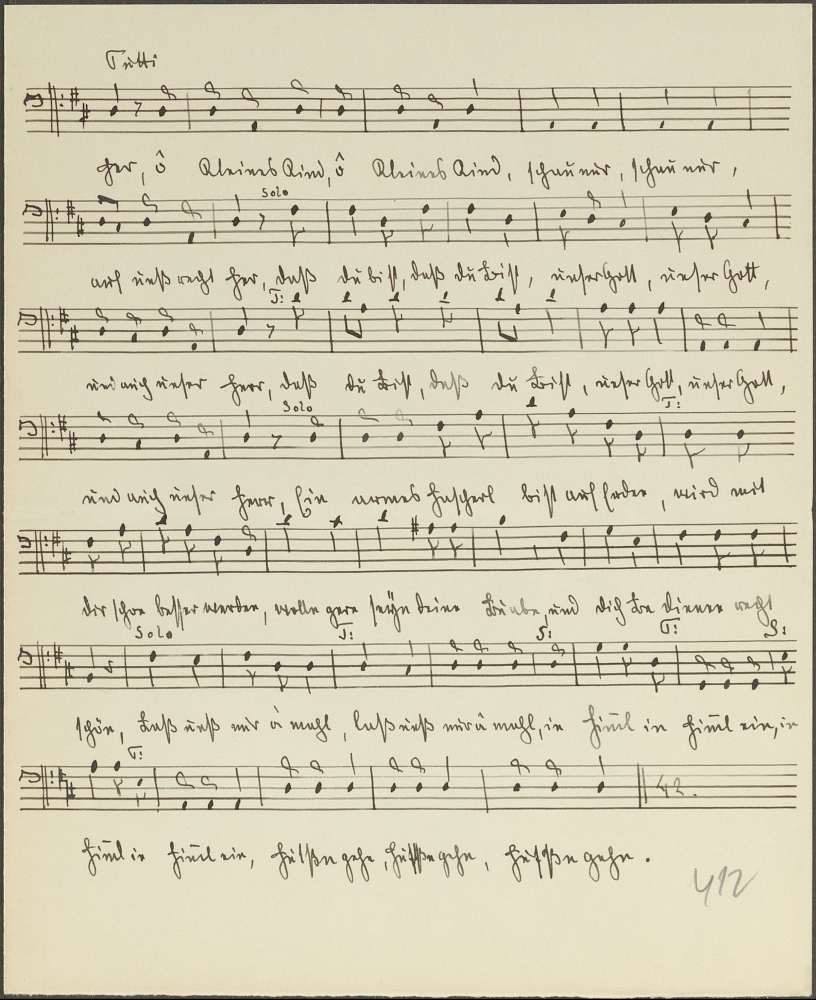 Tutti
her, ô Kleines Kind, ô Kleines Kind, schau nur, schau nur,
Solo
auf unß recht her, daß du bist, daß du bist, unser Gott, unser Gott,
T:
und auch unser Herr, daß du bist, daß du bist, unser Gott, unser Gott,
Solo T:
und auch unser Herr, Ein armes Hascherl bist auf Erden, wird mit
dir schon besser werden, wolln gern seyn deine Buabe, und dich be dienen recht
Solo T: S: T: S:
schön, Laß unß nur á mahl, laß unß nur á mahl, in Himl in Himl ein, in
T:
Himl in Himl ein, gehn, gehn, gehn.
42.
412